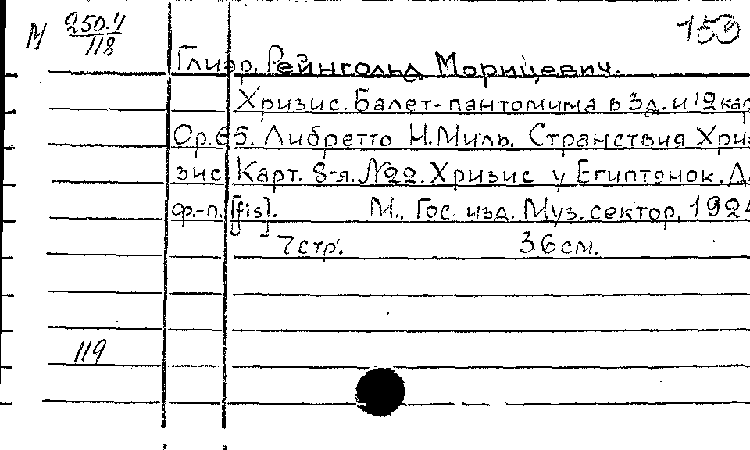 М 250.4/118
153
Глиэр. Рейнгольд Морицевич.
Хризис. Балет-пантомима в 3д. и 12 кар
Op.65. Либретто Н.Миль. Странствия Хри-
зис Карт. 8-я. №22. Хризис у Египтянок. Д
ф.-п. [fis]. М., Гос. изд. Муз. сектор, 192
7 стр. 36 см.
119